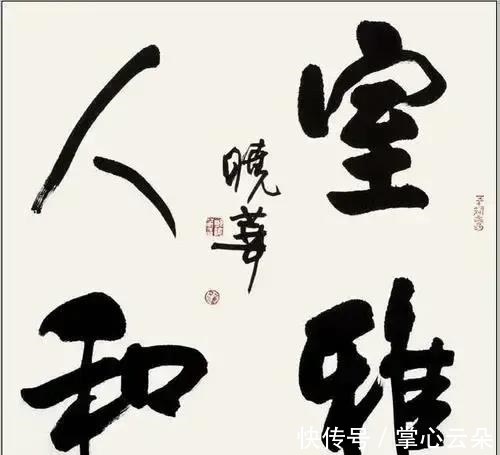 室雅
人和
曉華
快传号/掌心云朵